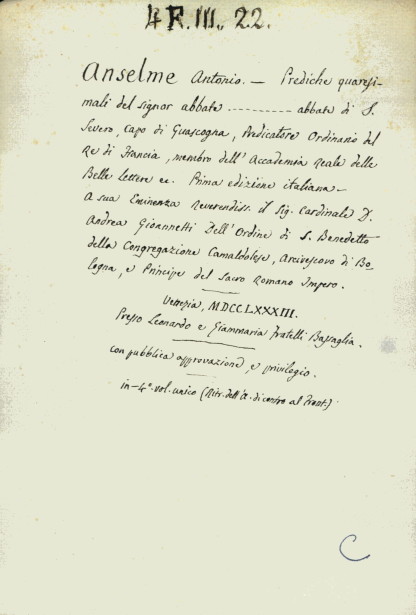 4 R. III. 22.
Anselme Antonio. — Prediche quaresi-
mali del signor abbate ------------ abbate di S.
Severo, Capo di Guascogna, Predicatore Ordinario del
Re di Francia, membro dell'Accademia Reale delle
Belle lettere ec. Prima edizione italiana —
A sua Eminenza Reverendiss. il Sig. Cardinale D.
Andrea Gioannetti Dell'Ordine di S. Benedetto
della Congregazione Camaldolese, Arcivescovo di Bo-
logna, e Principe del Sacro Romano Impero.
Venezia, MDCCLXXXIII.
Presso Leonardo e Giammaria fratelli Bassaglia.
con pubblica approvazione, e privilegio.
in-4°. vol. unico (Ritr. dell'A. di contro al Front.)
C